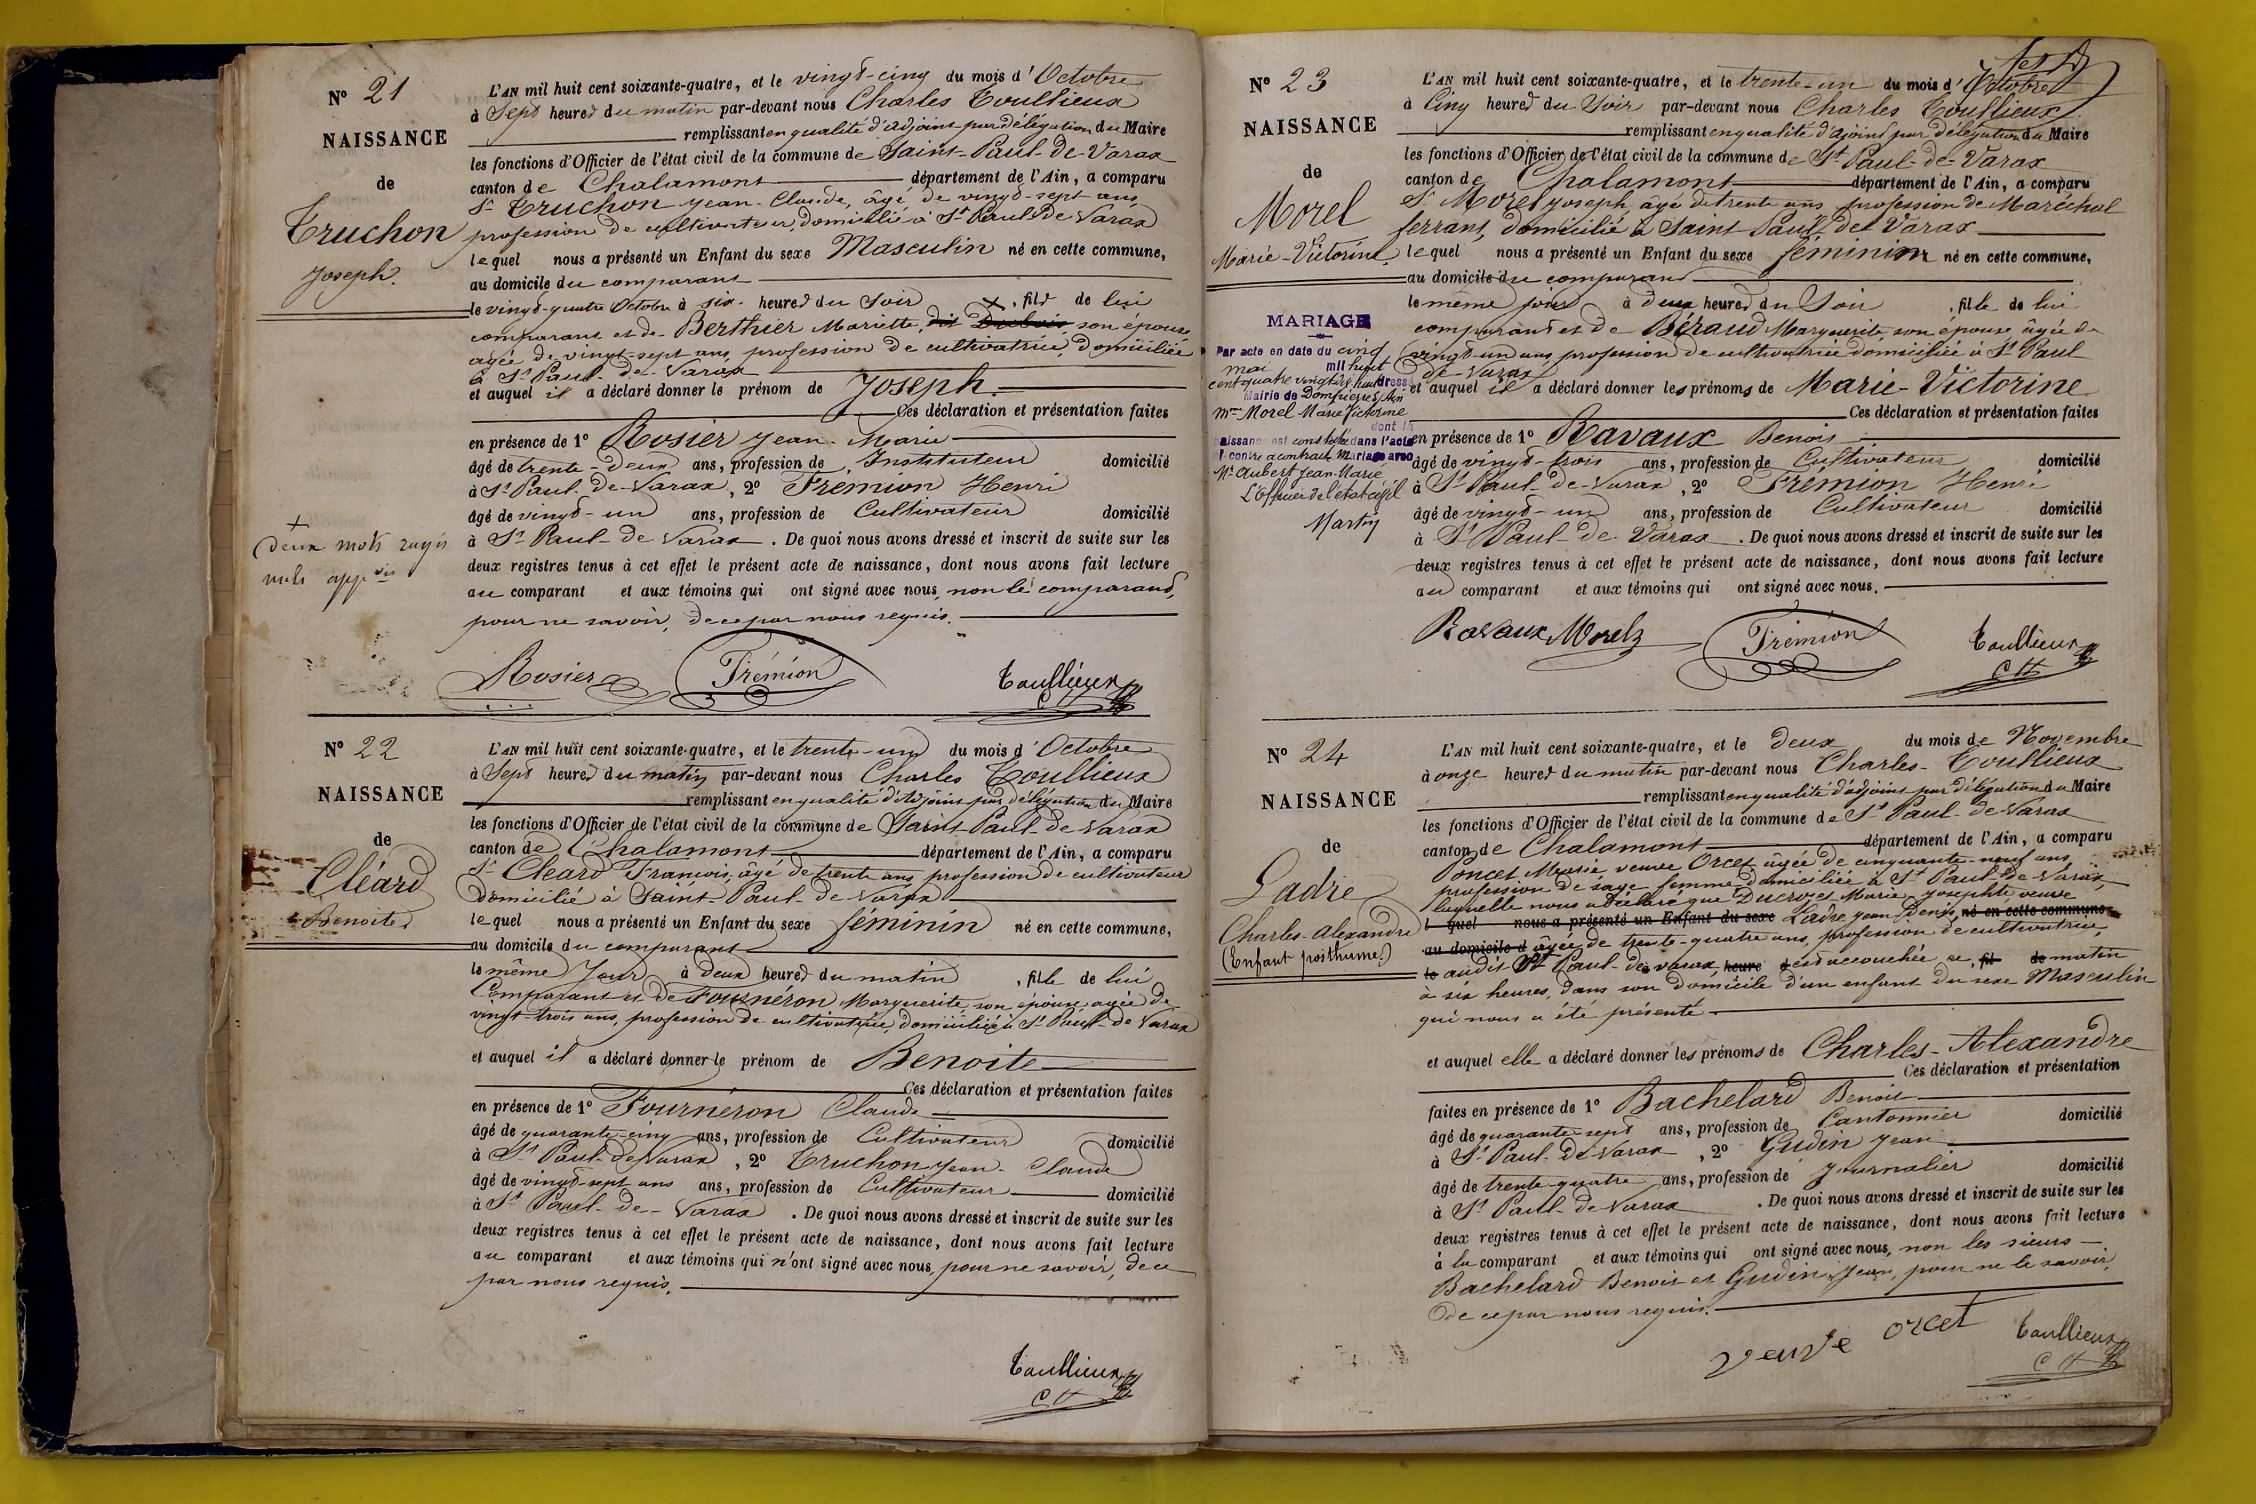 N° 21
NAISSANCE
de
Truchon
Joseph.
L'AN mil huit cent soixante-quatre, et le vingt-cinq du mois d'Octobre
à Sept heures du matin par-devant nous Charles Toullieux
remplissant en qualité d'adjoint par délégation du Maire
les fonctions d'Officier de l'état civil de la commune de Saint-Paul-de-Varax
canton de Chalamont département de l'Ain, a comparu
Sr Truchon Jean-Claude, âgé de vingt-sept ans,
profession de cultivateur, domicilié à St Paul de Varax
lequel nous a présenté un Enfant du sexe Masculin né en cette commune,
au domicile du comparant
le vingt-quatre Octobre à six heures du Soir , fils de lui
comparant et de Berthier Mariette, dit Dubois, son épouse
agée de vingt-sept ans, profession de cultivatrice, domiciliée
à St Paul-de-Varax
et auquel il a déclaré donner le prénom de Joseph.
Ces déclaration et présentation faites
en présence de 1° Rosier Jean-Marie
âgé de trente-deux ans, profession de Instituteur domicilié
à St Paul-de-Varax, 2° Frémion Henri
âgé de vingt-un ans, profession de Cultivateur domicilié
à St Paul-de Varax. De quoi nous avons dressé et inscrit de suite sur les
deux registres tenus à cet effet le présent acte de naissance, dont nous avons fait lecture
au comparant et aux témoins qui ont signé avec nous, non le comparant,
pour ne savoir, de ce par nous requis.
+
deux mots rayés
nuls
Rosier Frémion Toullieux
N° 22
NAISSANCE
de
Cléard
Benoite
L'AN mil huit cent soixante-quatre, et le trente-un du mois d'Octobre
à Sept heures du matin par-devant nous Charles Toullieux
remplissant en qualité d'Adjoint par délégation du Maire
les fonctions d'Officier de l'état civil de la commune de Saint-Paul-de-Varax
canton de Chalamont département de l'Ain, a comparu
Sr Cléard François, âgé de trente ans, profession de cultivateur
domicilié à Saint-Paul-de-Varax
lequel nous a présenté un Enfant du sexe féminin né en cette commune,
au domicile du comparant
le même Jour à deux heures du matin , fille de lui
Comparant et de Fournéron Marguerite, son épouse, agée de
vingt-trois ans, profession de cultivatrice, domiciliée à St Paul-de Varax
et auquel il a déclaré donner le prénom de Benoite
Ces déclaration et présentation faites
en présence de 1° Fournéron Claude
âgé de quarante-cinq ans, profession de Cultivateur domicilié
à St Paul-de Varax, 2° Truchon Jean-Claude
âgé de vingt-sept ans ans, profession de Cultivateur domicilié
à St Paul-de-Varax. De quoi nous avons dressé et inscrit de suite sur les
deux registres tenus à cet effet le présent acte de naissance, dont nous avons fait lecture
au comparant et aux témoins qui n'ont signé avec nous, pour ne savoir, de ce
par nous requis.
Toullieux
N° 23
NAISSANCE
de
Morel
Marie-Victorine
MARIAGE
Par acte en date du cinq
mai mil huit
cent quatre vingt dix huit dressé
Mairie de Dompierre s/Ain
Mme Morel Marie Victorine
dont la
naissance est constatée dans l'acte
ci contre a contracté Mariage avec
Mr Aubert Jean-Marie
L'officier de l'état civil
Martin
L'AN mil huit cent soixante-quatre, et le trente-un du mois d'Octobre
à Cinq heures du Soir par-devant nous Charles Toullieux
remplissant en qualité d'adjoint par délégation du Maire
les fonctions d'Officier de l'état civil de la commune de St Paul-de-Varax
canton de Chalamont département de l'Ain, a comparu
Sr Morel Joseph, âgé de trente ans, profession de Maréchal
ferrant, domicilié à Saint Paul de Varax
lequel nous a présenté un Enfant du sexe féminin né en cette commune,
au domicile du comparant
le même jour à deux heures du Soir , fille de lui
comparant et de Béraud Marguerite, son épouse âgée de
vingt-un ans, profession de cultivatrice domiciliée à St Paul
de-Varax
et auquel il a déclaré donner les prénoms de Marie-Victorine
Ces déclaration et présentation faites
en présence de 1° Ravaux Benoit
âgé de vingt-trois ans, profession de Cultivateur domicilié
à St Paul-de-Varax, 2° Frémion Henri
âgé de vingt-un ans, profession de Cultivateur domicilié
à St Paul de Varax. De quoi nous avons dressé et inscrit de suite sur les
deux registres tenus à cet effet le présent acte de naissance, dont nous avons fait lecture
au comparant et aux témoins qui ont signé avec nous.
Ravaux Morel Frémion Toullieux
N° 24
NAISSANCE
de
Ladre
Charles-Alexandre
(Enfant posthume)
L'AN mil huit cent soixante-quatre, et le deux du mois de Novembre
à onze heures du matin par-devant nous Charles-Toullieux
remplissant en qualité d'adjoint par délégation du Maire
les fonctions d'Officier de l'état civil de la commune de St Paul-de-Varax
canton de Chalamont département de l'Ain, a comparu
Poncet Marie, veuve Orcet, âgée de cinquante-neuf ans,
profession de sage femme domiciliée à St Paul-de Varax,
laquelle nous a déclaré que Ducrozet Marie-Josephte, veuve
l quel nous a présenté un Enfant du sexe Ladre Jean Denis, né en cette commune
au domicile d âgée de trente-quatre ans, profession de cultivatrice,
le audit St Paul-de Varax, heure d est accouchée, ce fil de matin
à six heures, dans son domicile d'un enfant du sexe Masculin
qui nous a été présenté
et auquel elle a déclaré donner les prénoms de Charles-Alexandre
Ces déclaration et présentation
faites en présence de 1° Bachelard Benoit
âgé de quarante-sept ans, profession de Cantonnier domicilié
à St Paul-de-Varax, 2° Gudin Jean
âgé de trente-quatre ans, profession de Journalier domicilié
à St Paul-de Varax. De quoi nous avons dressé et inscrit de suite sur les
deux registres tenus à cet effet le présent acte de naissance, dont nous avons fait lecture
à la comparant et aux témoins qui ont signé avec nous, non les sieurs
Bachelard Benoit et Gudin Jean, pour ne le savoir,
de ce par nous requis.
veuve orcet Toullieux